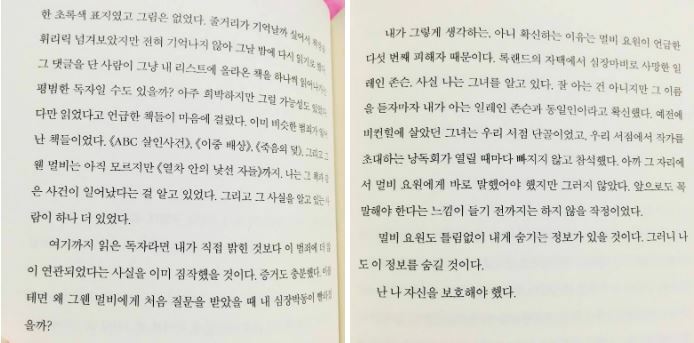 한 초록색 표지였고 그림은 없었다. 줄거리가 기억날까 싶어서 책장을
휘리릭 넘겨보았지만 전혀 기억나지 않아 그날 밤에 다시 읽기로 했다.
그 댓글을 단 사람이 그냥 내 리스트에 올라온 책을 하나씩 읽어나가는
평범한 독자일 수도 있을까? 아주 희박하지만 그럴 가능성도 있었다.
다만 읽었다고 언급한 책들이 마음에 걸렸다. 이미 비슷한 범죄가 일어
난 책들이었다. 《ABC 살인사건》, 《이중 배상》, 《죽음의 덫》, 그리고 그
웬 멀비는 아직 모르지만 《열차 안의 낯선 자들》까지. 나는 그 책과 같
은 사건이 일어났다는 걸 알고 있었다. 그리고 그 사실을 알고 있는 사
람이 하나 더 있었다.
여기까지 읽은 독자라면 내가 직접 밝힌 것보다 이 범죄에 더 많
이 연관되었다는 사실을 이미 짐작했을 것이다. 증거도 충분했다. 이를
테면 왜 그웬 멀비에게 처음 질문을 받았을 때 내 심장박동이 빨라졌
을까?
내가 그렇게 생각하는, 아니 확신하는 이유는 멀비 요원이 언급한
다섯 번째 피해자 때문이다. 록랜드의 자택에서 심장마비로 사망한 일
레인 존슨. 사실 나는 그녀를 알고 있다. 잘 아는 건 아니지만 그 이름
을 듣자마자 내가 아는 일레인 존슨과 동일인이라고 확신했다. 예전에
비컨힐에 살았던 그녀는 우리 서점 단골이었고, 우리 서점에서 작가를
초대하는 낭독회가 열릴 때마다 빠지지 않고 참석했다. 아까 그 자리에
서 멀비 요원에게 바로 말했어야 했지만 그러지 않았다. 앞으로도 꼭
말해야 한다는 느낌이 들기 전까지는 하지 않을 작정이었다.
멀비 요원도 틀림없이 내게 숨기는 정보가 있을 것이다. 그러니 나
도 이 정보를 숨길 것이다.
난 나 자신을 보호해야 했다.